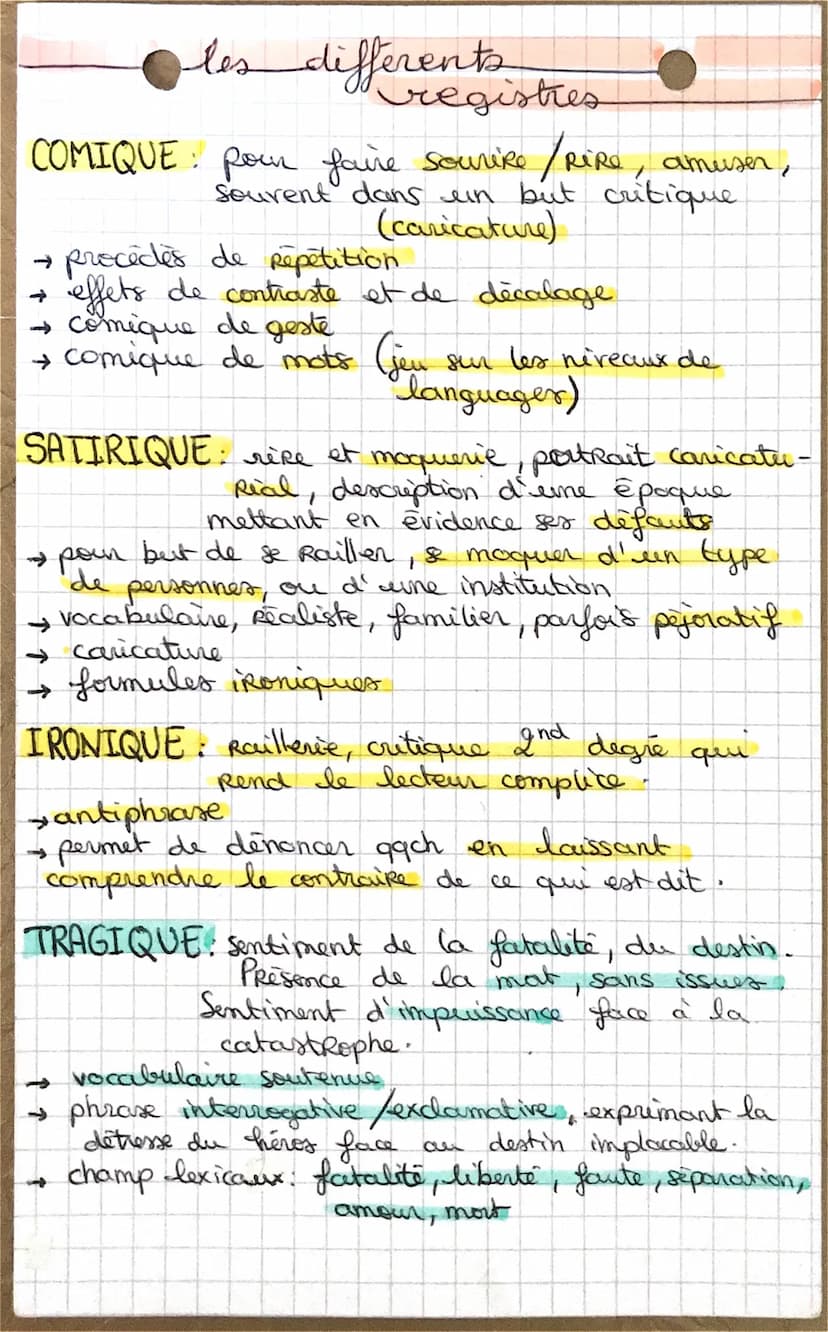 les différents
registres
COMIQUE : pour faire sourire / rire, amuser,
souvent dans un but critique
(caricature)
→ procédés de répétition
→ effets de contraste et de décalage
→ comique de geste
→ comique de mots (jeu sur les niveaux de
languages)
SATIRIQUE : rire et moquerie, portrait caricatu-
rial, description d'une époque
mettant en évidence ses défauts
→ pour but de se railler, se moquer d'un type
de personnes, ou d'une institution
→ vocabulaire, réaliste, familier, parfois péjoratif
→ caricature
→ formules ironiques
IRONIQUE : Raillerie, critique 2nd degré qui
rend le lecteur complice.
→ antiphrase
→ permet de dénoncer qqch en laissant
comprendre le contraire de ce qui est dit.
TRAGIQUE : sentiment de la fatalité, du destin.
Présence de la mort, sans issues.
Sentiment d'impuissance face à la
catastrophe.
→ vocabulaire soutenue
→ phrase interrogative / exclamative, exprimant la
détresse du héros face au destin implacable.
→ champ lexicaux : fatalité, liberté, faute, séparation,
amour, mort